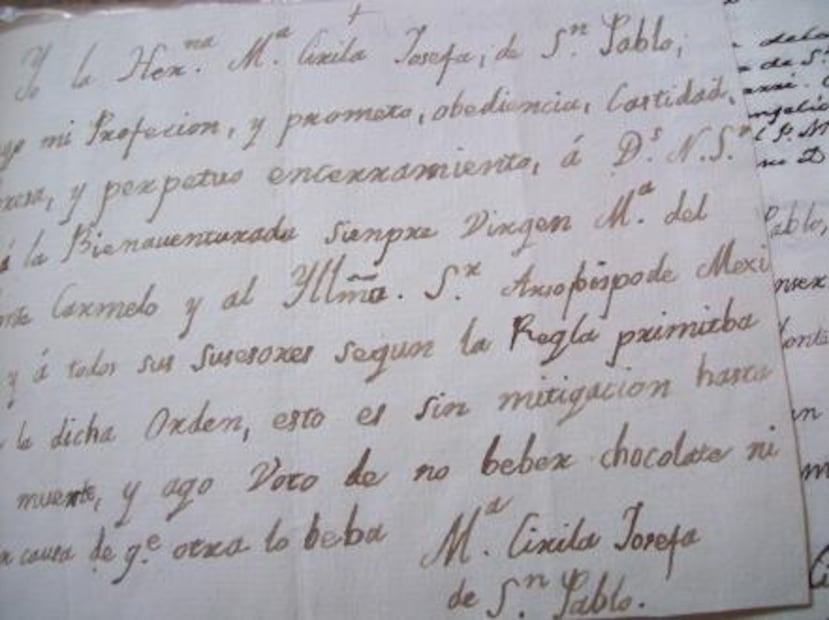 +
Yo la Herna. Ma. Cirila Josefa, de Sn. Pablo,
ago mi Profecion, y prometo, obediencia, Castidad,
y perpetuo encerramiento, á D.s N. S.r
á la Bienauenturada sienpre Virgen Ma. del
Carmelo y al Yllmo. S.r Arsobispo de Mexi
y á todos sus susesores segun la Regla primitba
la dicha Orden, esto es sin mitigacion hasta
muerte, y ago Voto de no beber chocolate ni
causa de q.e otra lo beba
Ma. Cirila Josefa
de Sn. Pablo.
Pablo,